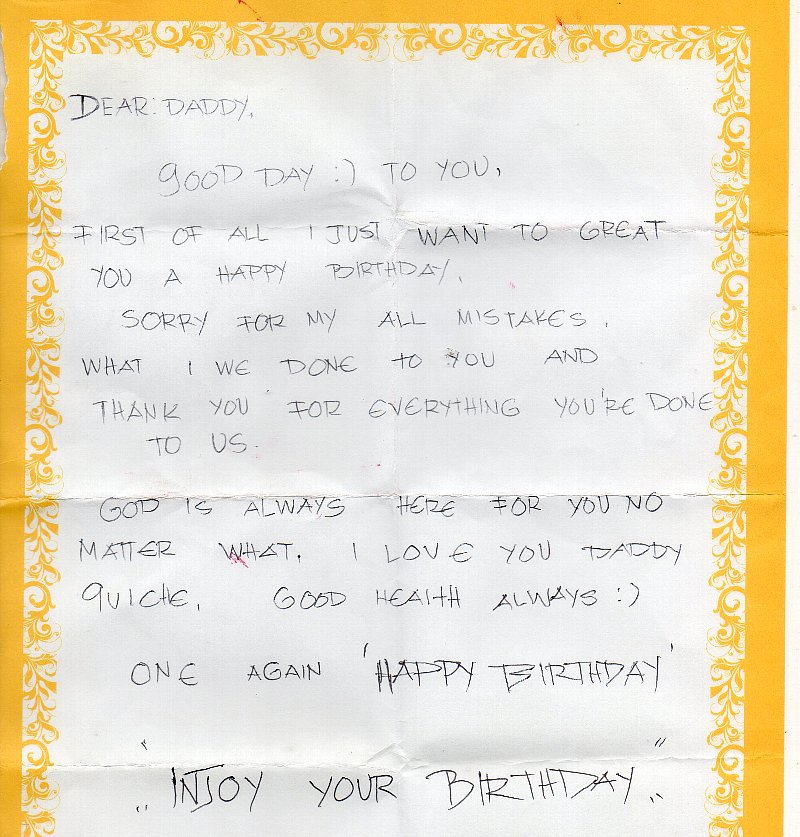 DEAR: DADDY,
GOOD DAY :) TO YOU,
FIRST OF ALL I JUST WANT TO GREAT
YOU A HAPPY BIRTHDAY,
SORRY FOR MY ALL MISTAKES,
WHAT I WE DONE to YOU AND
THANK YOU FOR EVERYTHING YOU'RE DONE
TO US.
GOD IS ALWAYS HERE FOR YOU NO
MATTER WHAT, I LOVE YOU DADDY
QUICHE, GOOD HEALTH ALWAYS :)
ONE AGAIN 'HAPPY BIRTHDAY'
" INJOY YOUR BIRTHDAY "